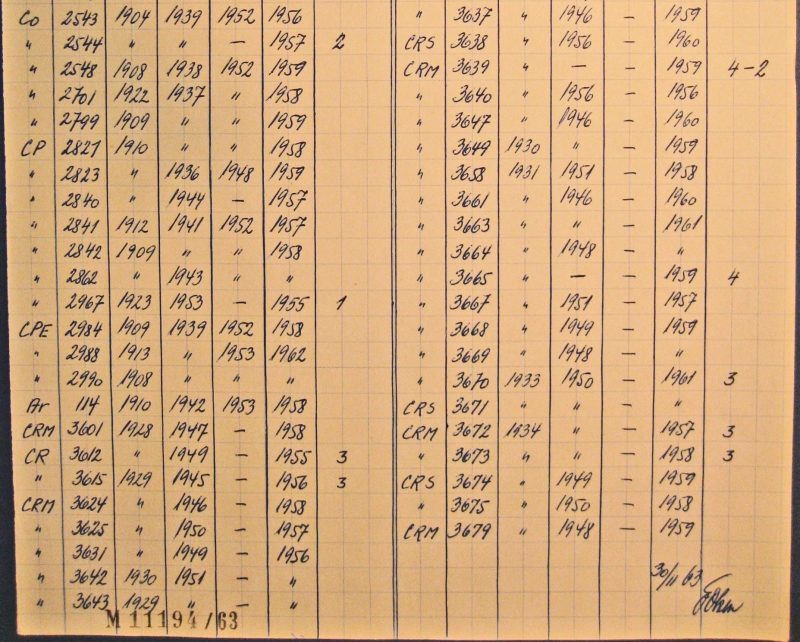 Co 2543 1904 1939 1952 1956
" 2544 " " – 1957 2
" 2548 1908 1938 1952 1959
" 2701 1922 1937 " 1958
" 2799 1909 " " 1959
CP 2821 1910 " " 1958
" 2823 " 1936 1948 1959
" 2840 " 1944 – 1957
" 2841 1912 1941 1952 1957
" 2842 1909 " " 1958
" 2862 " 1943 " "
" 2967 1923 1953 – 1955 1
CPE 2984 1909 1939 1952 1958
" 2988 1913 " 1953 1962
" 2990 1908 " " "
Ar 114 1910 1942 1953 1958
CRM 3601 1928 1947 – 1958
CR 3612 " 1949 – 1955 3
" 3615 1929 1945 – 1956 3
CRM 3624 " 1946 – 1958
" 3625 " 1950 – 1957
" 3631 " 1949 – 1956
" 3642 1930 1951 – "
" 3643 1929 " – "
M 11194/63
" 3637 " 1946 – 1959
CRS 3638 " 1956 – 1960
CRM 3639 " – – 1959 4–2
" 3640 " 1956 – 1956
" 3647 " 1946 – 1960
" 3649 1930 " – 1959
" 3658 1931 1951 – 1958
" 3661 " 1946 – 1960
" 3663 " " – 1961
" 3664 " 1948 – "
" 3665 " – – 1959 4
" 3667 " 1951 – 1957
" 3668 " 1949 – 1959
" 3669 " 1948 – "
" 3670 1933 1950 – 1961 3
CRS 3671 " " – "
CRM 3672 1934 " – 1957 3
" 3673 " " – 1958 3
CRS 3674 " 1949 – 1959
" 3675 " 1950 – 1958
CRM 3679 " 1948 – 1959
30/11 63